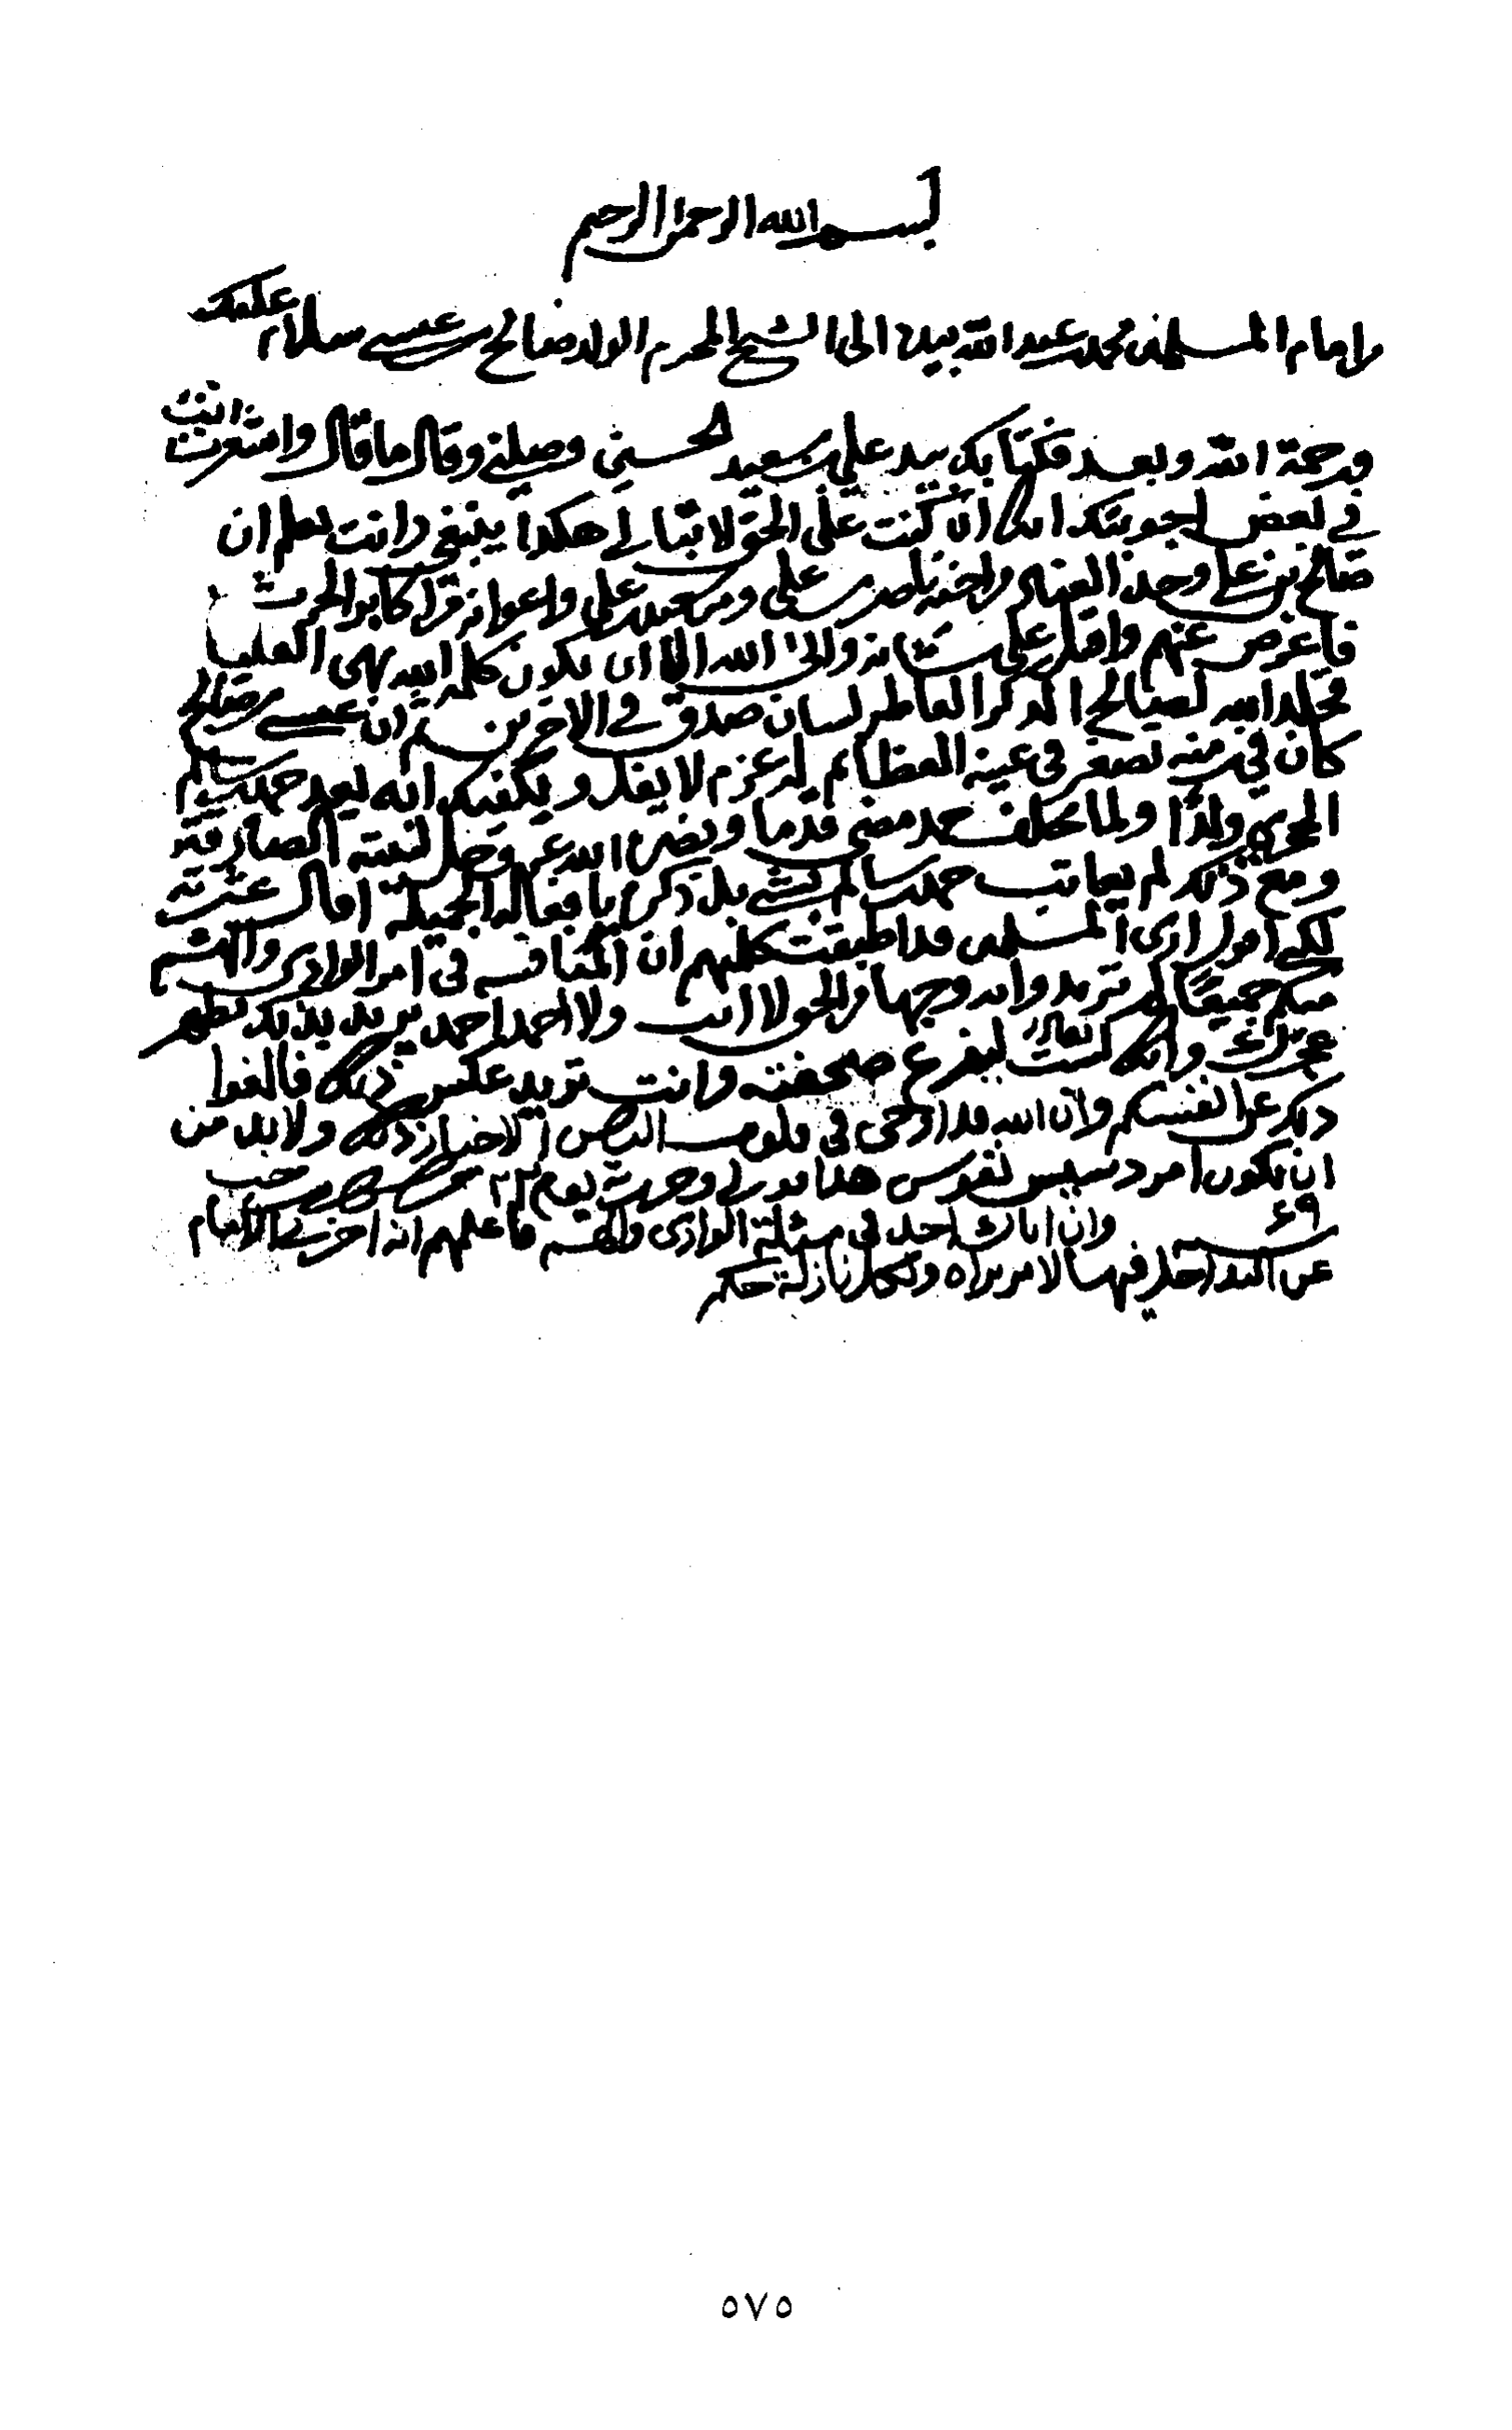 بسم الله الرحمن الرحيم
من امام المسلمين محمد بن عبدالله بيده الى الشيخ المحترم الولد صالح بن عيسى سلام عليك
ورحمة الله وبعد فكتابك بيد علي بن سعيد الحسيني وصلني وقال ما قال وامتثلت انت
في بعض اجوبتك انك ان كنت على الحق لا تبالي هكذا ينبغي وانت تعلم ان
صالح بن علي وجد ناصر بن علي ومن سعيد بن علي واعوانه من اكابر الحرث
فاعرض عنهم واقبل على شانه وابى الله الا ان تكون كلمة الله هي العليا
فخلد الله لصالح الذكر العاطر لسان صدق في الاخرين ثم ان عيسى بن صالح
كان في تصغر في عينه العظائم له عزم لا يفل ويكفيك انه يعد حمد بن سالم
الحجري ولدا ولما حمد مضى قدما وبض الله عز وجل لنيته الصادقة
ومع ذلك لم يعاتب حمد بن سالم بشيء بل ذكره بافعاله الجميلة اقال عثرته
لكني اقول ارى المسلمين قد اطبقت كلمتهم ان المنافسة في امر الوادي والقسم
منكم جميعا لم تريدوا به وجها من الحق لا انت ولا احمد احمد يريد بذلك تطهير
وانت تريد عكس ذلك فالغوا
ذلك عن انفسكم وان الله قد اوحى في قلوب البعض الاخبار ذلك ولا بد من
ان يكون امر دسيس نفوس هذا قولي وحرر يوم ٢٢ من رجب
سنة ٦٩ وان اتاك احد في مسئلة الوادي والقسم فاعلمهم انه اخرني الامام
عن التداخل فيها لامر يراه ولكل نازلة حكم
٥٧٥